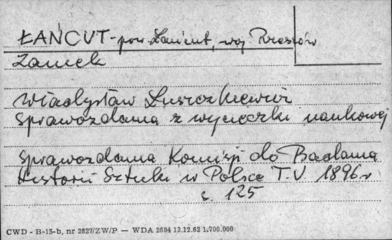 ŁAŃCUT - pow. Łańcut, woj. Rzeszów
Zamek
Władysław Łuszczkiewicz
Sprawozdania z wycieczki naukowej
Sprawozdania Komisji do Badania
Historii Sztuki w Polsce T. V 1896 r.
s. 125
CWD - B-15-b, nr 2827/ZW/P — WDA 2694 12.12.62 1.700.000